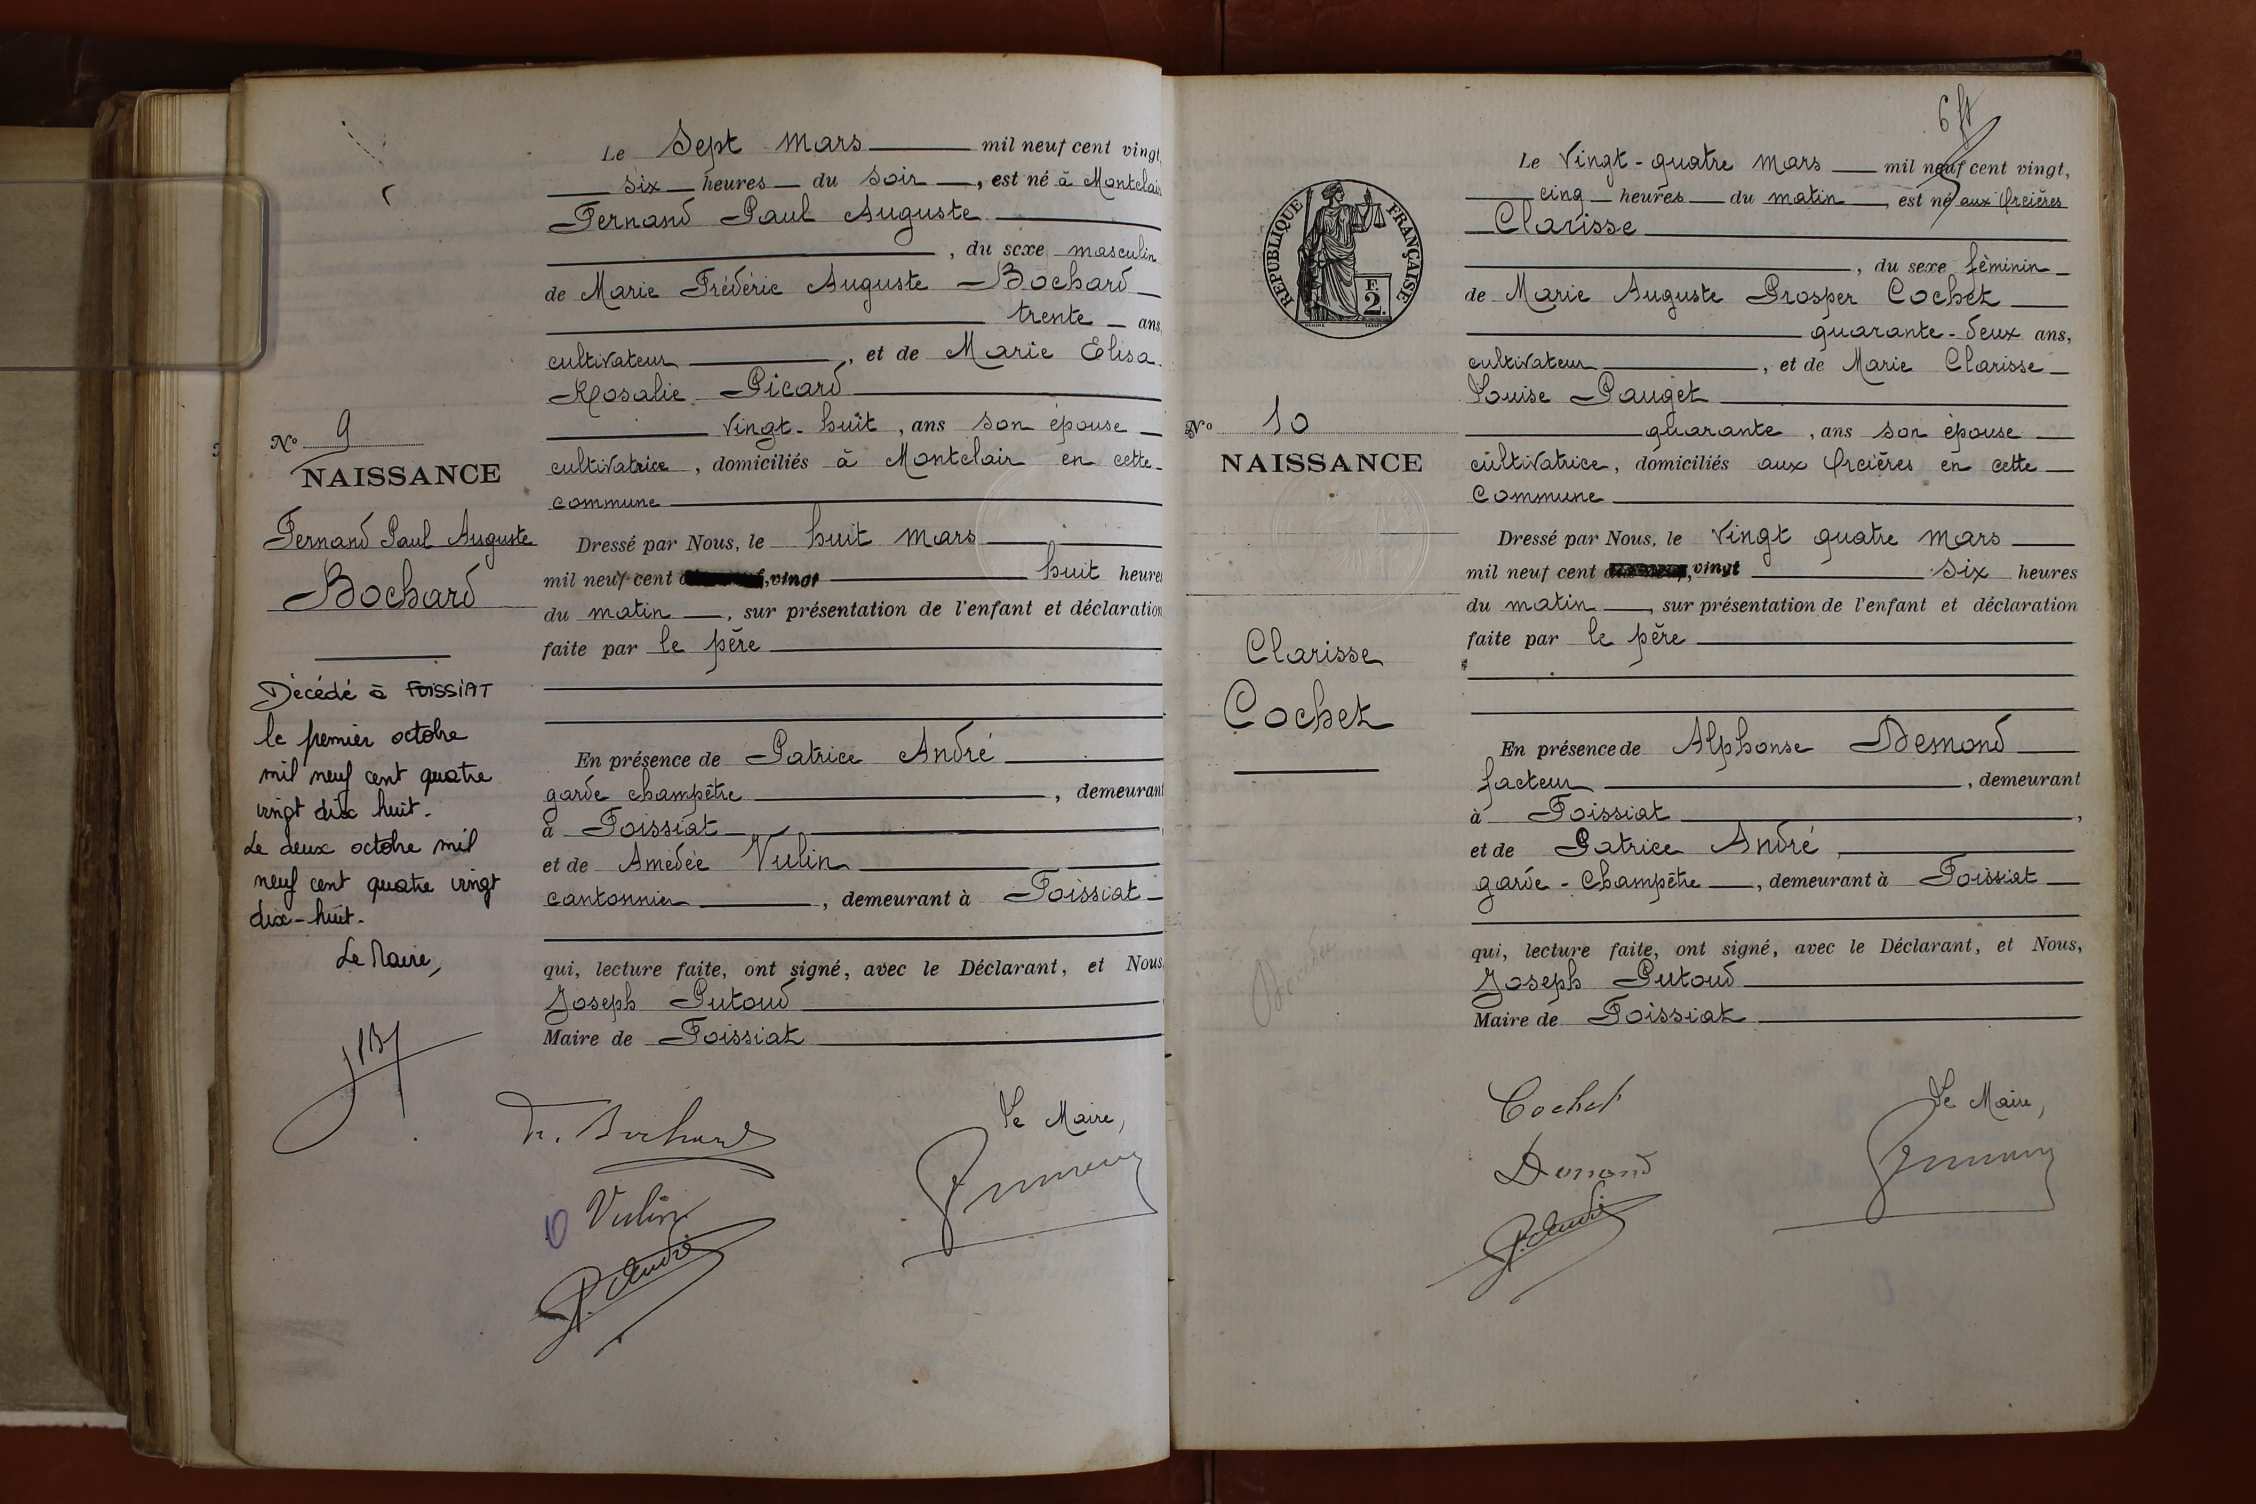 Le Sept Mars mil neuf cent vingt,
six heures du soir, est né à Montclair
Fernand Paul Auguste
, du sexe masculin
de Marie Frédéric Auguste Bochard
trente ans,
cultivateur, et de Marie Elisa
Rosalie Picard
vingt-huit, ans son épouse
cultivatrice, domiciliés à Montclair en cette
commune
Dressé par Nous, le huit mars
mil neuf cent vingt huit heures
du matin, sur présentation de l'enfant et déclaration
faite par le père
En présence de Patrice André
garde champêtre, demeurant
à Foissiat
et de Amédée Vulin
cantonnier, demeurant à Foissiat
qui, lecture faite, ont signé, avec le Déclarant, et Nous
Joseph Putoud
Maire de Foissiat
Le Maire,
Vulin
P. André
No 9
NAISSANCE
Fernand Paul Auguste
Bochard
Décédé à FOISSIAT
le premier octobre
mil neuf cent quatre
vingt dix huit.
Le deux octobre mil
neuf cent quatre vingt
dix-huit.
Le Maire,
RÉPUBLIQUE FRANÇAISE
F.
2.
No 10
NAISSANCE
Clarisse
Cochet
Le vingt-quatre mars mil neuf cent vingt,
cinq heures du matin, est né aux Orcières
Clarisse
, du sexe féminin
de Marie Auguste Prosper Cochet
quarante-deux ans,
cultivateur, et de Marie Clarisse
Louise Pauget
quarante, ans son épouse
cultivatrice, domiciliés aux Orcières en cette
commune
Dressé par Nous, le vingt quatre mars
mil neuf cent vingt six heures
du matin, sur présentation de l'enfant et déclaration
faite par le père
En présence de Alphonse Desmond
facteur, demeurant
à Foissiat,
et de Patrice André
garde-Champêtre, demeurant à Foissiat
qui, lecture faite, ont signé, avec le Déclarant, et Nous,
Joseph Putoud
Maire de Foissiat
Cochet
Le Maire,
P. André